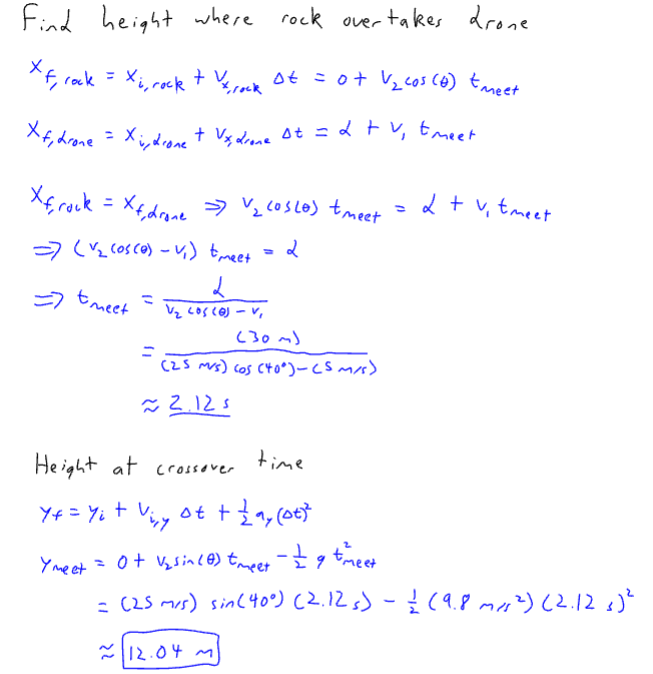 Find height where rock overtakes drone
x_{f,rock} = x_{i,rock} + v_{x,rock} Δt = 0 + v_2 cos(θ) t_{meet}
x_{f,drone} = x_{i,drone} + v_{x,drone} Δt = d + v_1 t_{meet}
x_{f,rock} = x_{f,drone} ⇒ v_2 cos(θ) t_{meet} = d + v_1 t_{meet}
⇒ (v_2 cos(θ) - v_1) t_{meet} = d
⇒ t_{meet} = d / (v_2 cos(θ) - v_1)
= (30 m) / ((25 m/s) cos(40°) - (5 m/s))
≈ 2.12 s
Height at crossover time
y_f = y_i + v_{i,y} Δt + 1/2 a_y (Δt)^2
y_{meet} = 0 + v_2 sin(θ) t_{meet} - 1/2 g t_{meet}^2
= (25 m/s) sin(40°) (2.12 s) - 1/2 (9.8 m/s^2) (2.12 s)^2
≈ 12.04 m